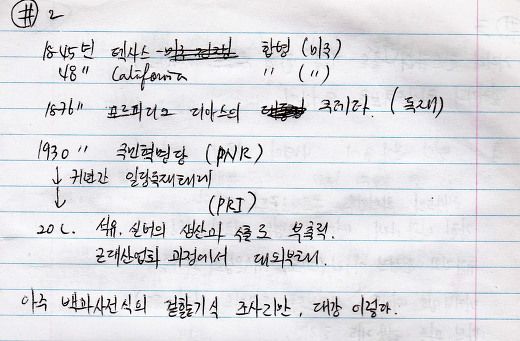 # 2
1845년 텍사스 합병 (미국)
48 〃 California 〃 (〃)
1876 〃 포르피리오 디아스의 쿠데타. (독재)
1930 〃 국민혁명당 (PNR)
↓ 일당독재태제
↓ (PRI)
20C. 석유, 의 생산과 수출로 부흥.
근대산업화 과정에서 대외부채.
아주 백과사전식의 겉핥기식 조사리만, 대강 이렇다.